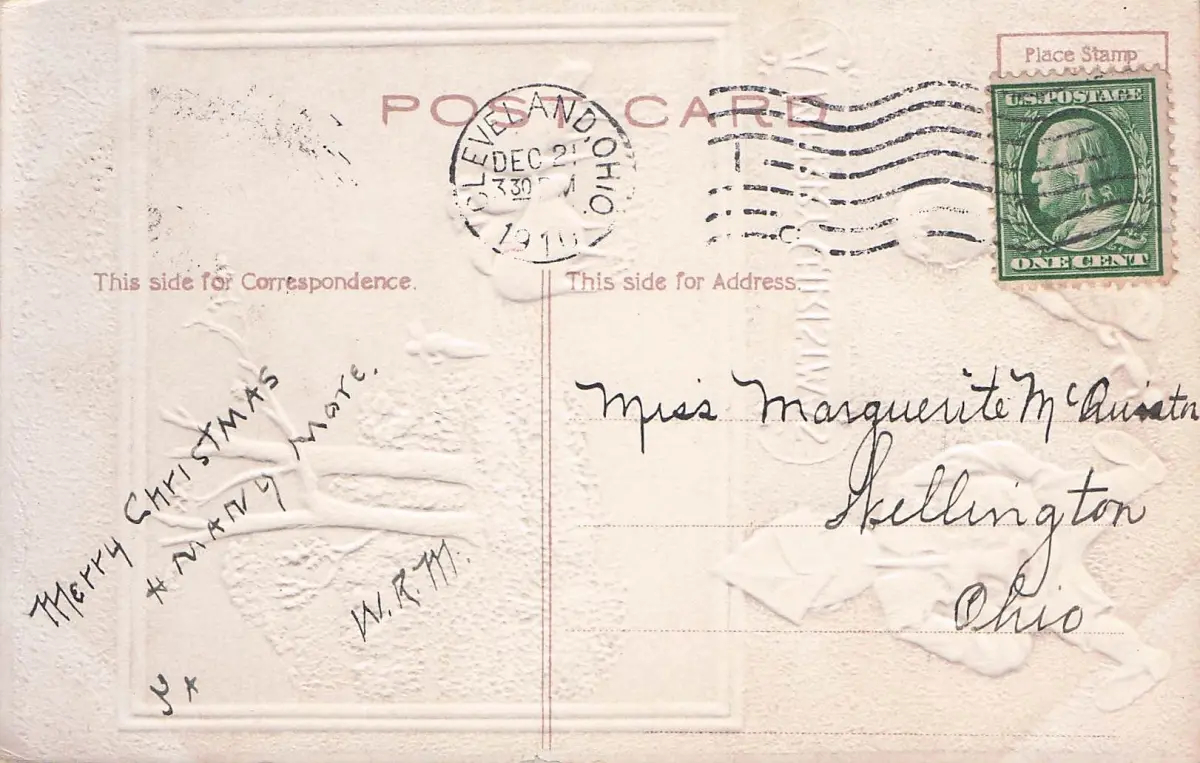 Place Stamp
U.S. POSTAGE
ONE CENT
POST CARD
CLEVELAND, OHIO.
DEC 21
330 PM
This side for Correspondence.
This side for Address.
Merry Christmas
+ Many More.
W.R.M.
Miss Marguerite
Wellington
Ohio